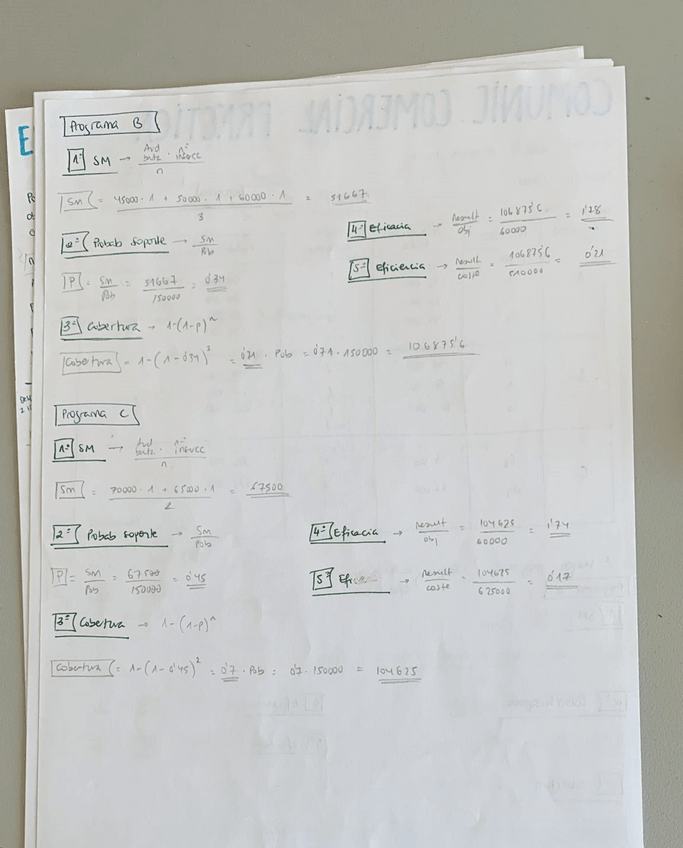 Programa B
1º SM → Aud butz · nº insecc / n
SM = 45000 · 1 + 50000 · 1 + 60000 · 1 / 3 = 51667
2º Probab soporte → SM / Pob
P = SM / Pob = 51667 / 150000 = 0'34
3º Cobertura → 1-(1-p)^n
Cobertura = 1-(1-0'34)^3 = 0'71 · Pob = 0'71 · 150000 = 106875'6
4º Eficacia → Result / obj = 106875'6 / 60000 = 1'78
5º Eficiencia → result / coste = 106875'6 / 510000 = 0'21
Programa C
1º SM → Aud butz · nº insecc / n
SM = 70000 · 1 + 65000 · 1 / 2 = 67500
2º Probab soporte → SM / Pob
P = SM / Pob = 67500 / 150000 = 0'45
3º Cobertura → 1-(1-p)^n
Cobertura = 1-(1-0'45)^2 = 0'7 · Pob = 0'7 · 150000 = 104625
4º Eficacia → result / obj = 104625 / 60000 = 1'74
5º → Result / coste = 104625 / 625000 = 0'17